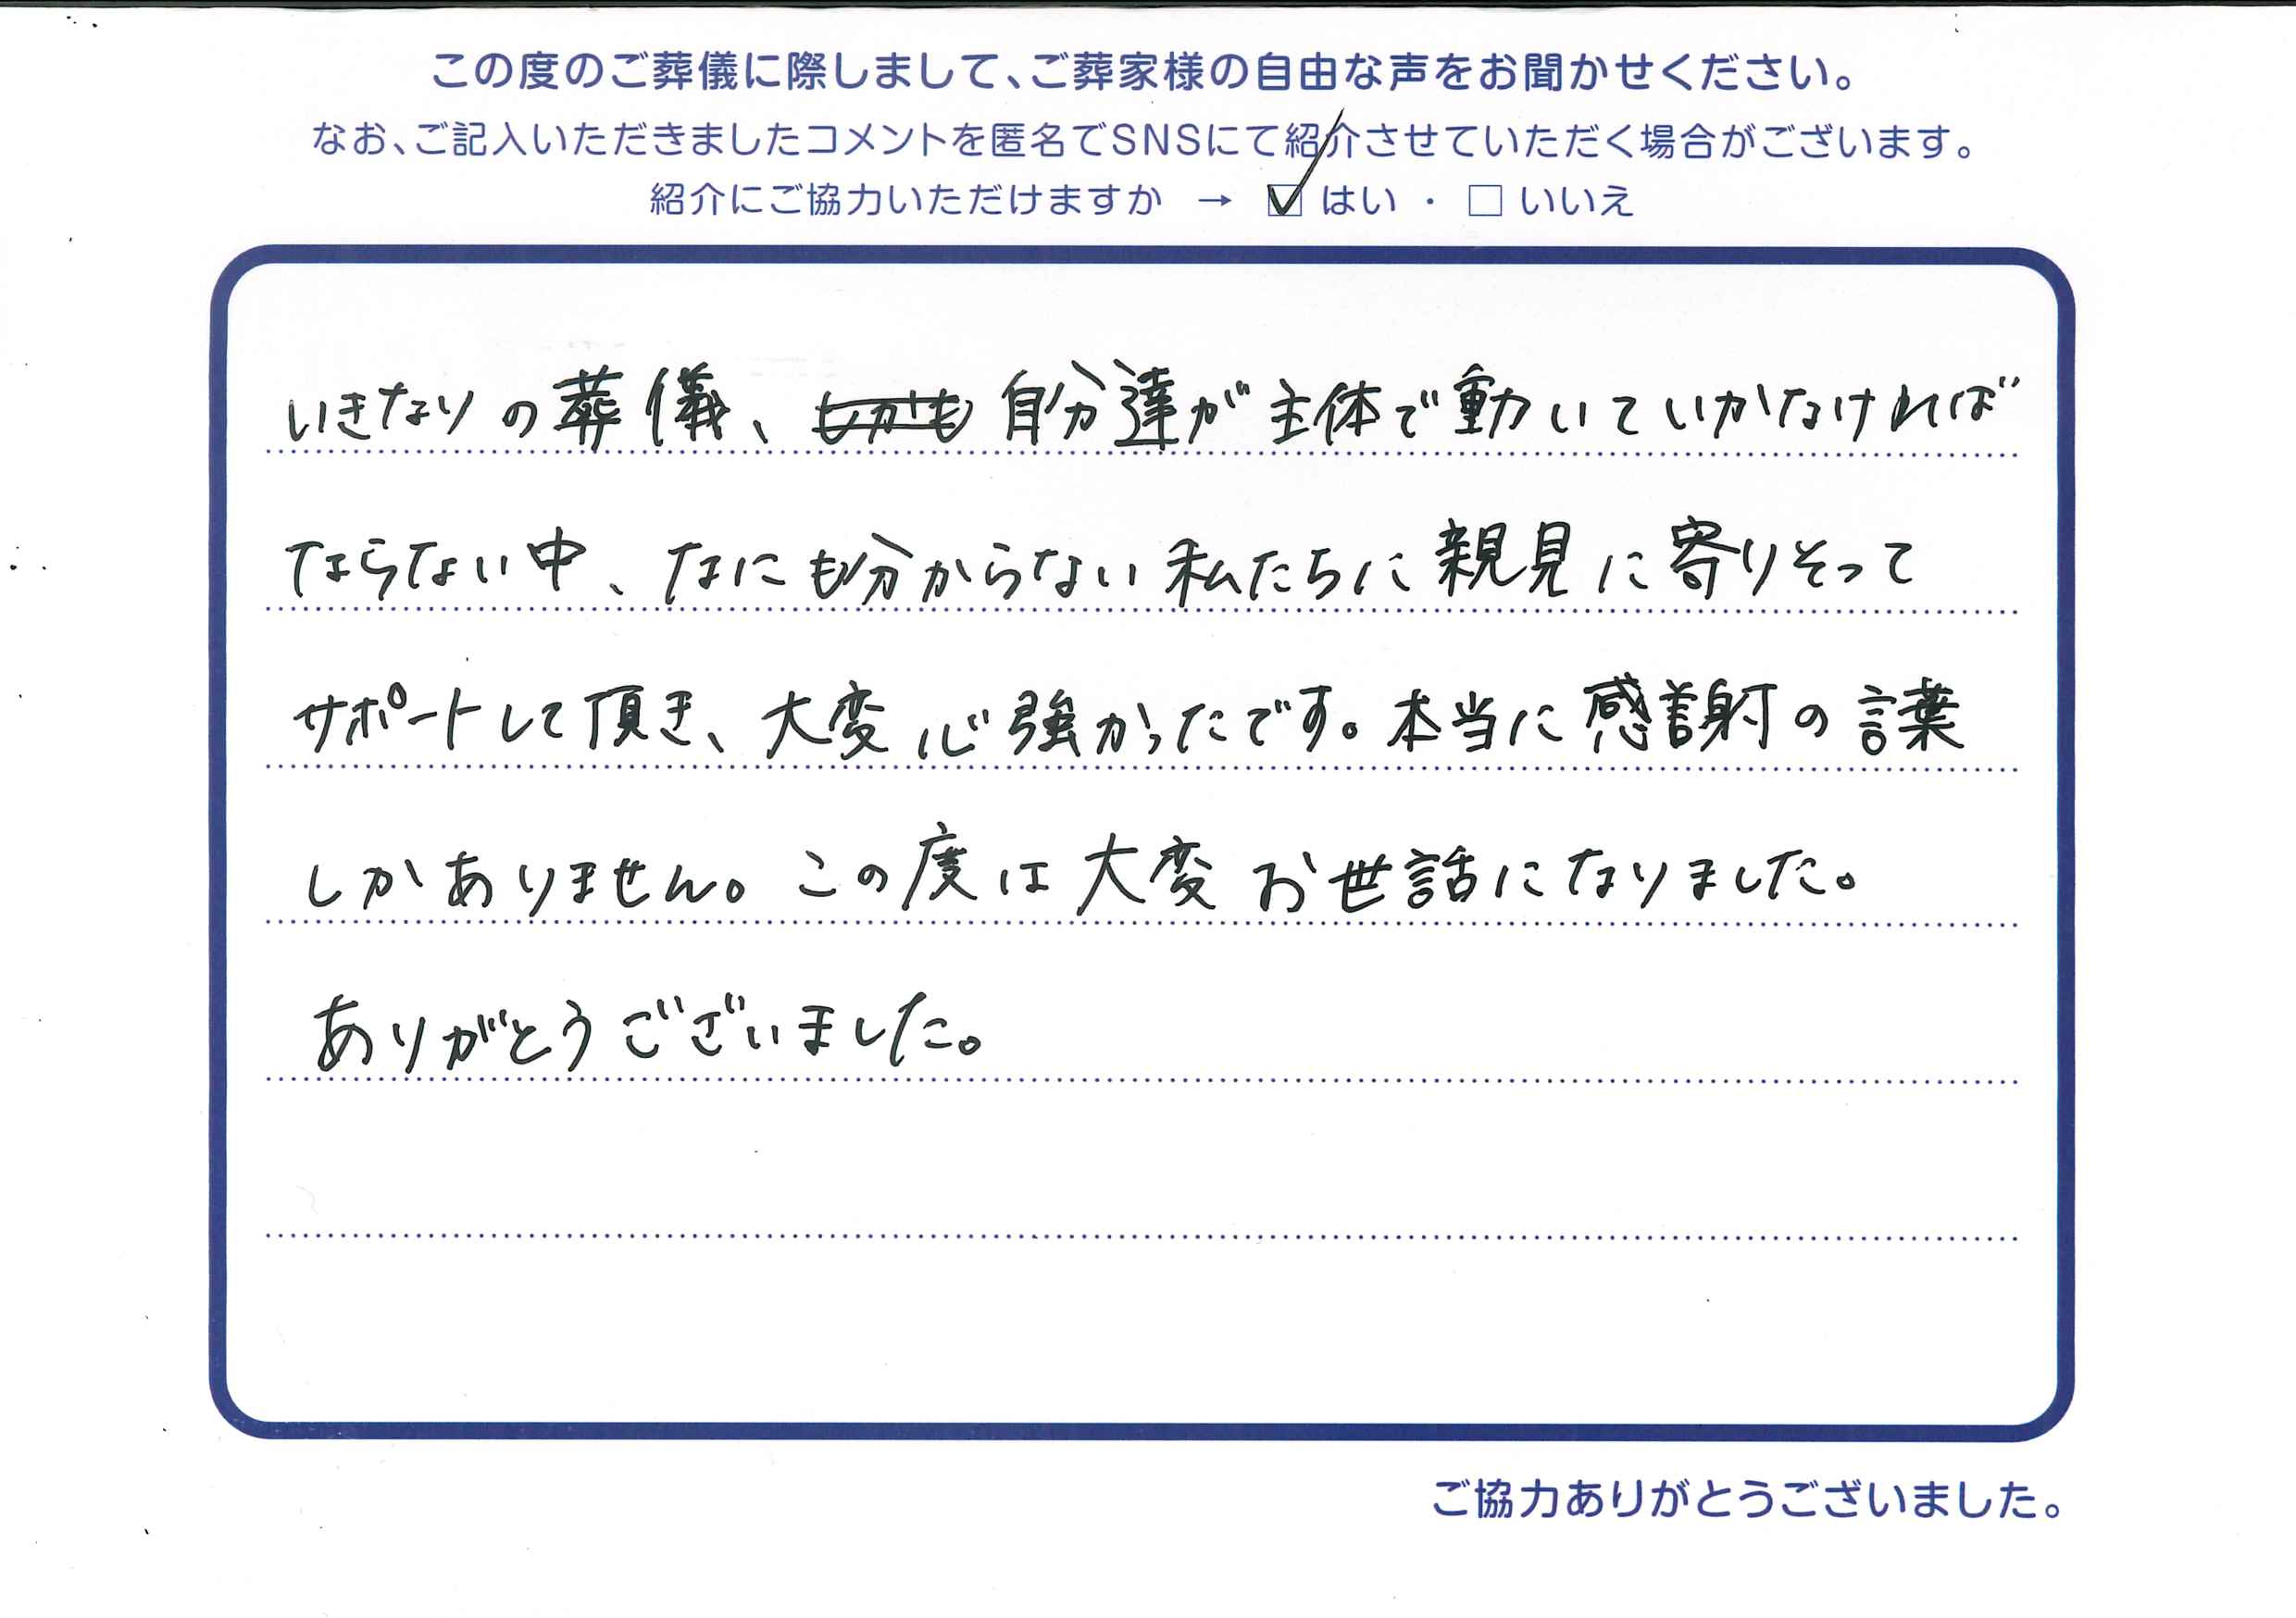 この度のご葬儀に際しまして、ご葬家様の自由な声をお聞かせください。
なお、ご記入いただきましたコメントを匿名でSNSにて紹介させていただく場合がございます。
紹介にご協力いただけますか → ☑ はい ・ □ いいえ
いきなりの葬儀、しかも自分達が主体で動いていかなければ
ならない中、なにも分からない私たちに親見に寄りそって
サポートして頂き、大変心強かったです。本当に感謝の言葉
しかありません。この度は大変お世話になりました。
ありがとうございました。
ご協力ありがとうございました。